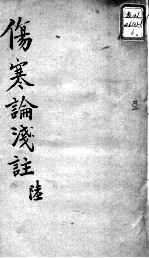 傷寒論淺註
陸